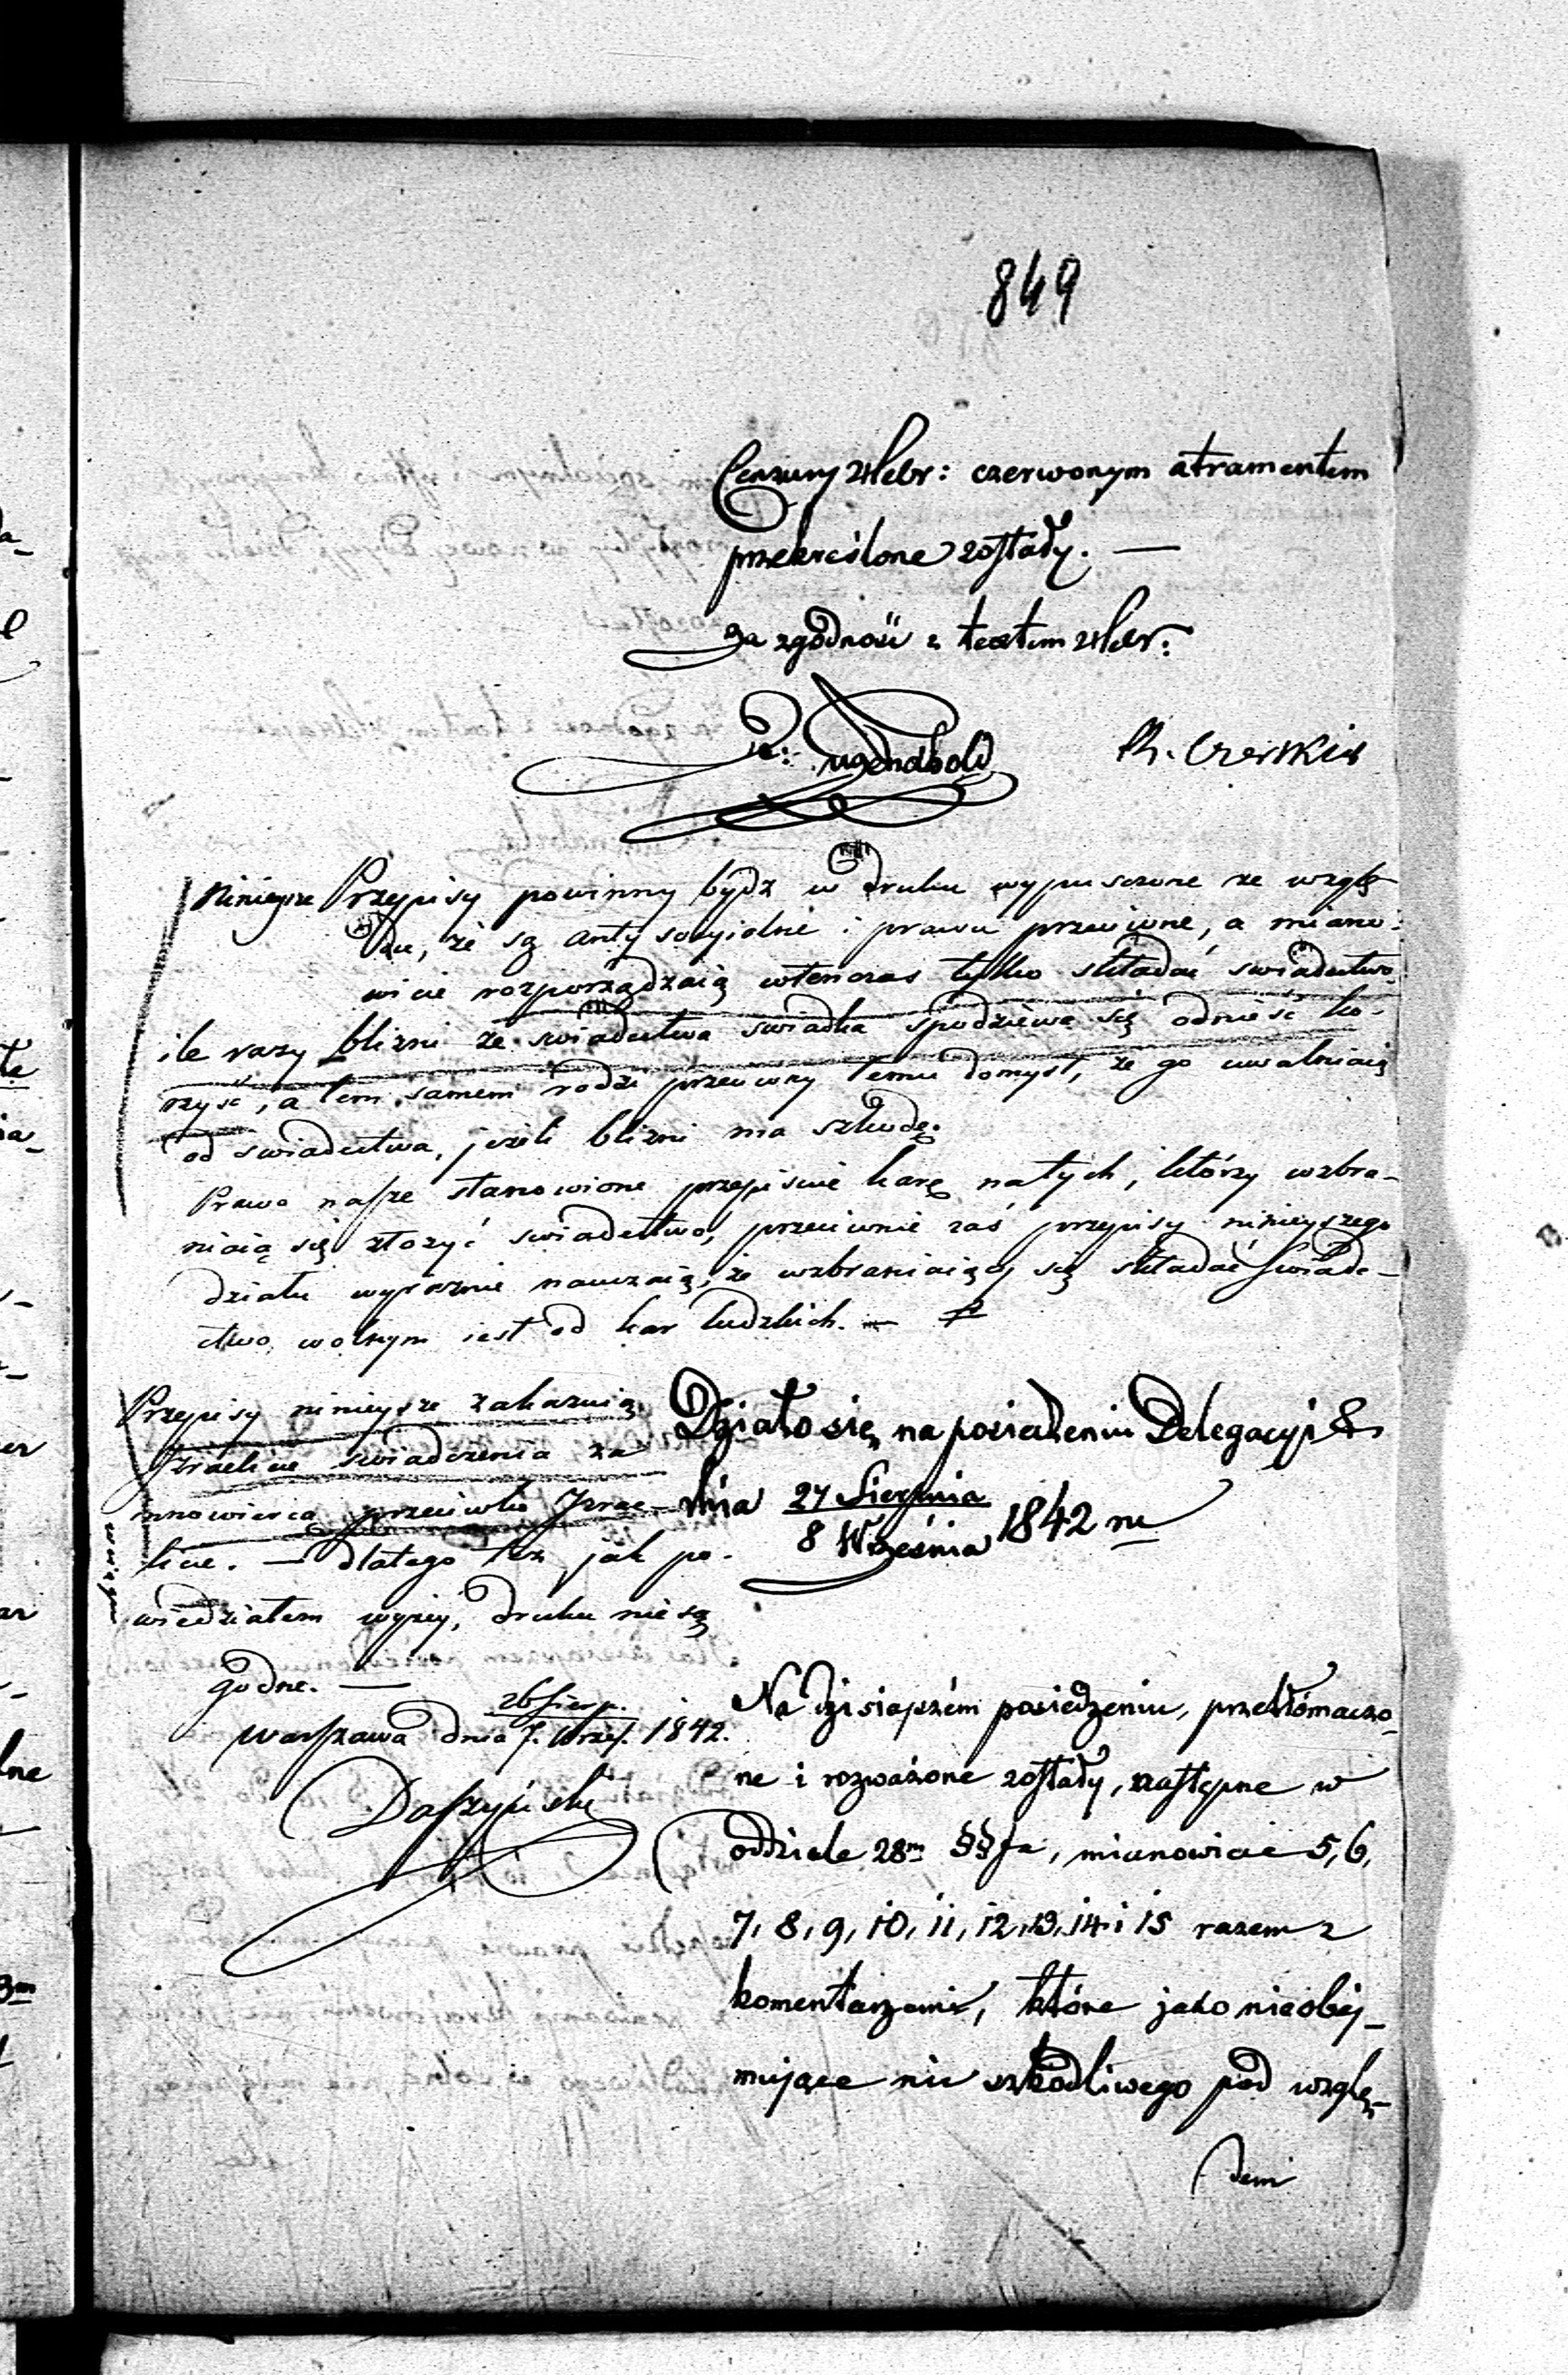 849
Cenzury Hebr: czerwonym atramentem
przekreślone zostały. —
Za zgodność z textem Hebr:
Tugendhold
Niniejsze Przepisy powinny bydź w druku wypuszczone ze wzglę-
du, że są anty socyjolne i prawu przeciwne, a miano:
wicie rozporządzaią wtenczas tylko składać swiadectwo
ile razy blizni ze swiadectwa swiadka spodziewa się odnieść ko-
rzyść, a tem samem rodzi przeciwny temu domysł, że go uwalniaią
od swiadectwa, jeżeli blizni ma szkodę.
Prawo nasze stanowione przepisuie karę na tych, którzy wzbra-
niaią się złożyć swiadectwo, przeciwnie zaś przepisy ninieyszego
działu wyraznie nauczaią, że wzbraniaiący się składać swiade-
ctwo, wolnym iest od kar ludzkich. —
Przepisy ninieysze zakazuią
Izraelicie swiadczenia za
innowiercą przeciwko Izrae-
licie. — dlatego też jak po-
wiedziałem wyżey, druku nie są
godne. —
26 Sierp.
Warszawa dnia 7. Wrześ. 1842.
Daszyński
Działo się na posiedzeniu Delegacyi &
dnia 27 Sierpnia
8 Września 1842 ru
Na dzisiajszém posiedzeniu, przetłómaczo-
ne i rozważone zostały, następne w
oddziele 28m §§fa, mianowicie 5, 6,
7, 8, 9, 10, 11, 12, 13, 14 i 15 razem z
komentarzami, które jako nieobej-
mujące nic szkodliwego pod wzglę-
dem